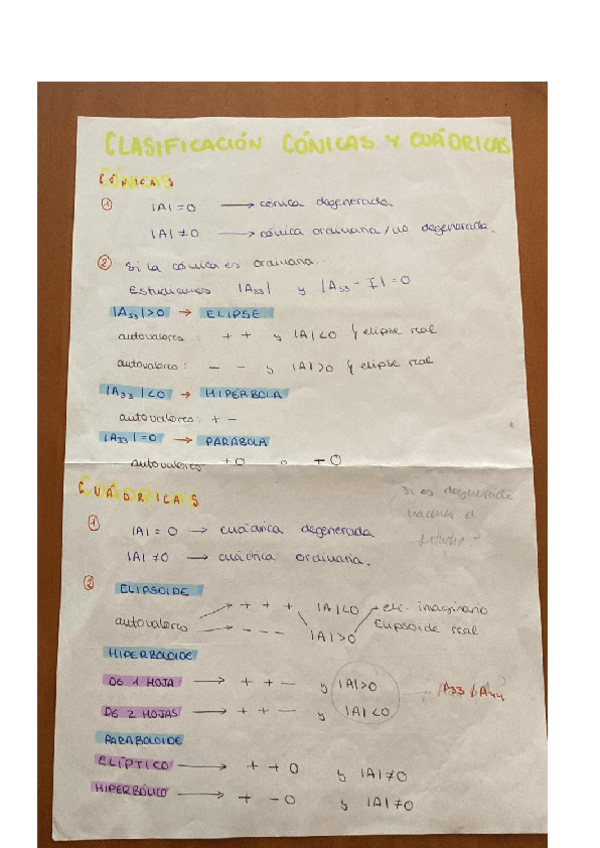 CLASIFICACIÓN CÓNICAS Y CUÁDRICAS
CÓNICAS
① |A| = 0 → cónica degenerada.
|A| ≠ 0 → cónica ordinaria / no degenerada.
② Si la cónica es ordinaria...
Estudiamos |A33| y |A33 - I| = 0
|A33| > 0 → ELIPSE
autovalores: + + y |A| < 0 elipse real
autovalores: - - y |A| > 0 elipse real
|A33| < 0 → HIPERBOLA
autovalores: + -
|A33| = 0 → PARABOLA
autovalores: +0 o +0
CUÁDRICAS
Si es degenerada
hacemos el
① |A| = 0 → cuádrica degenerada
|A| ≠ 0 → cuádrica ordinaria.
② ELIPSOIDE
autovalores + + + |A| < 0 elic. imaginario
- - - |A| > 0 Elipsoide real
HIPERBOLOIDE
DE 1 HOJA → + + - y |A| > 0
DE 2 HOJAS → + + - y |A| < 0
PARABOLOIDE
ELÍPTICO → + + 0 y |A| ≠ 0
HIPERBÓLICO → + - 0 y |A| ≠ 0